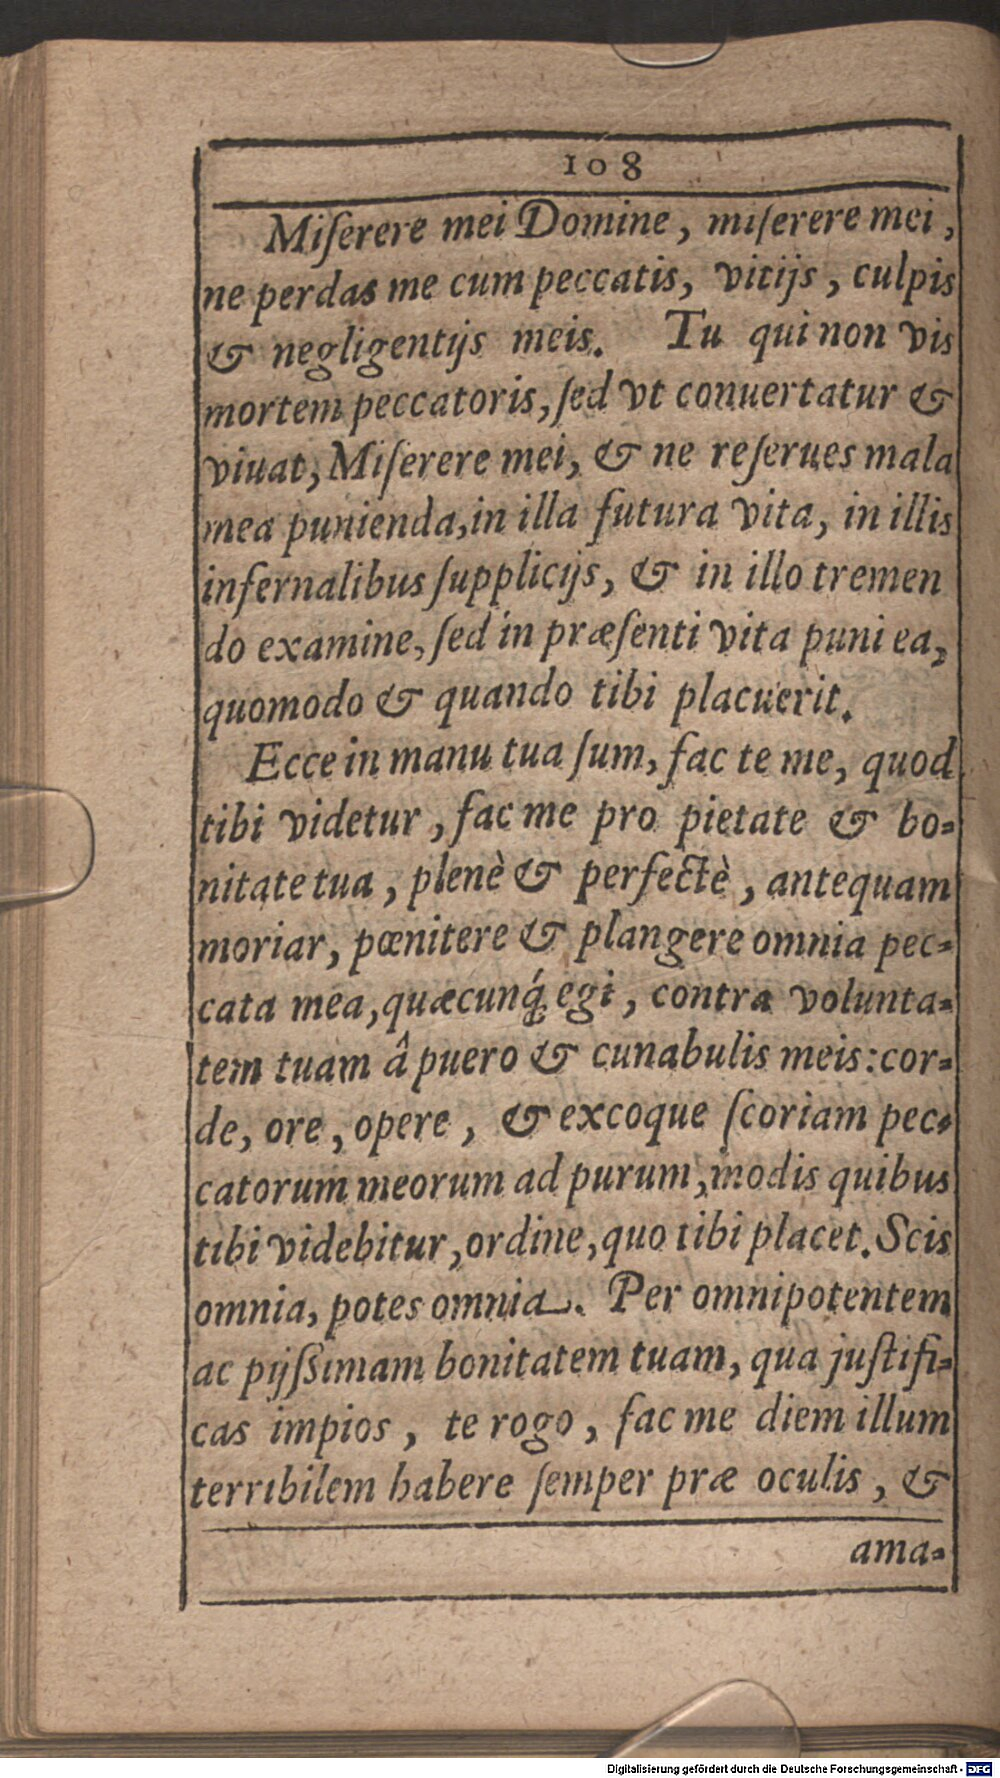 108
Miſerere mei Domine, miſerere mei,
ne perdas me cum peccatis, vitijs, culpis
& negligentijs meis. Tu qui non vis
mortem peccatoris, ſed vt conuertatur &
viuat, Miſerere mei, & ne reſerues mala
mea punienda, in illa futura vita, in illis
infernalibus ſupplicijs, & in illo tremen
do examine, ſed in præſenti vita puni ea,
quomodo & quando tibi placuerit.
Ecce in manu tua ſum, fac te me, quod
tibi videtur, fac me pro pietate & bo-
nitate tua, plenè & perfectè, antequam
moriar, pœnitere & plangere omnia pec-
cata mea, quæcunq́; egi, contra volunta-
tem tuam â puero & cunabulis meis: cor-
de, ore, opere, & excoque ſcoriam pec-
catorum meorum ad purum, modis quibus
tibi videbitur, ordine, quo tibi placet. Scis
omnia, potes omnia. Per omnipotentem
ac pijſsimam bonitatem tuam, qua juſtifi-
cas impios, te rogo, fac me diem illum
terribilem habere ſemper præ oculis, &
ama-
Digitalisierung gefördert durch die Deutsche Forschungsgemeinschaft - DFG